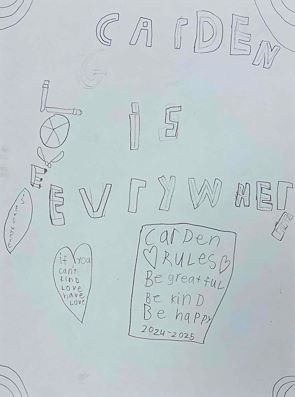 CArDEN
LOVE
iS
EVrYWHErE
if you
cant
find
Love
have
Love
CarDen
RULES
Be greatfuL
Be kinD
Be happy
2024-2025